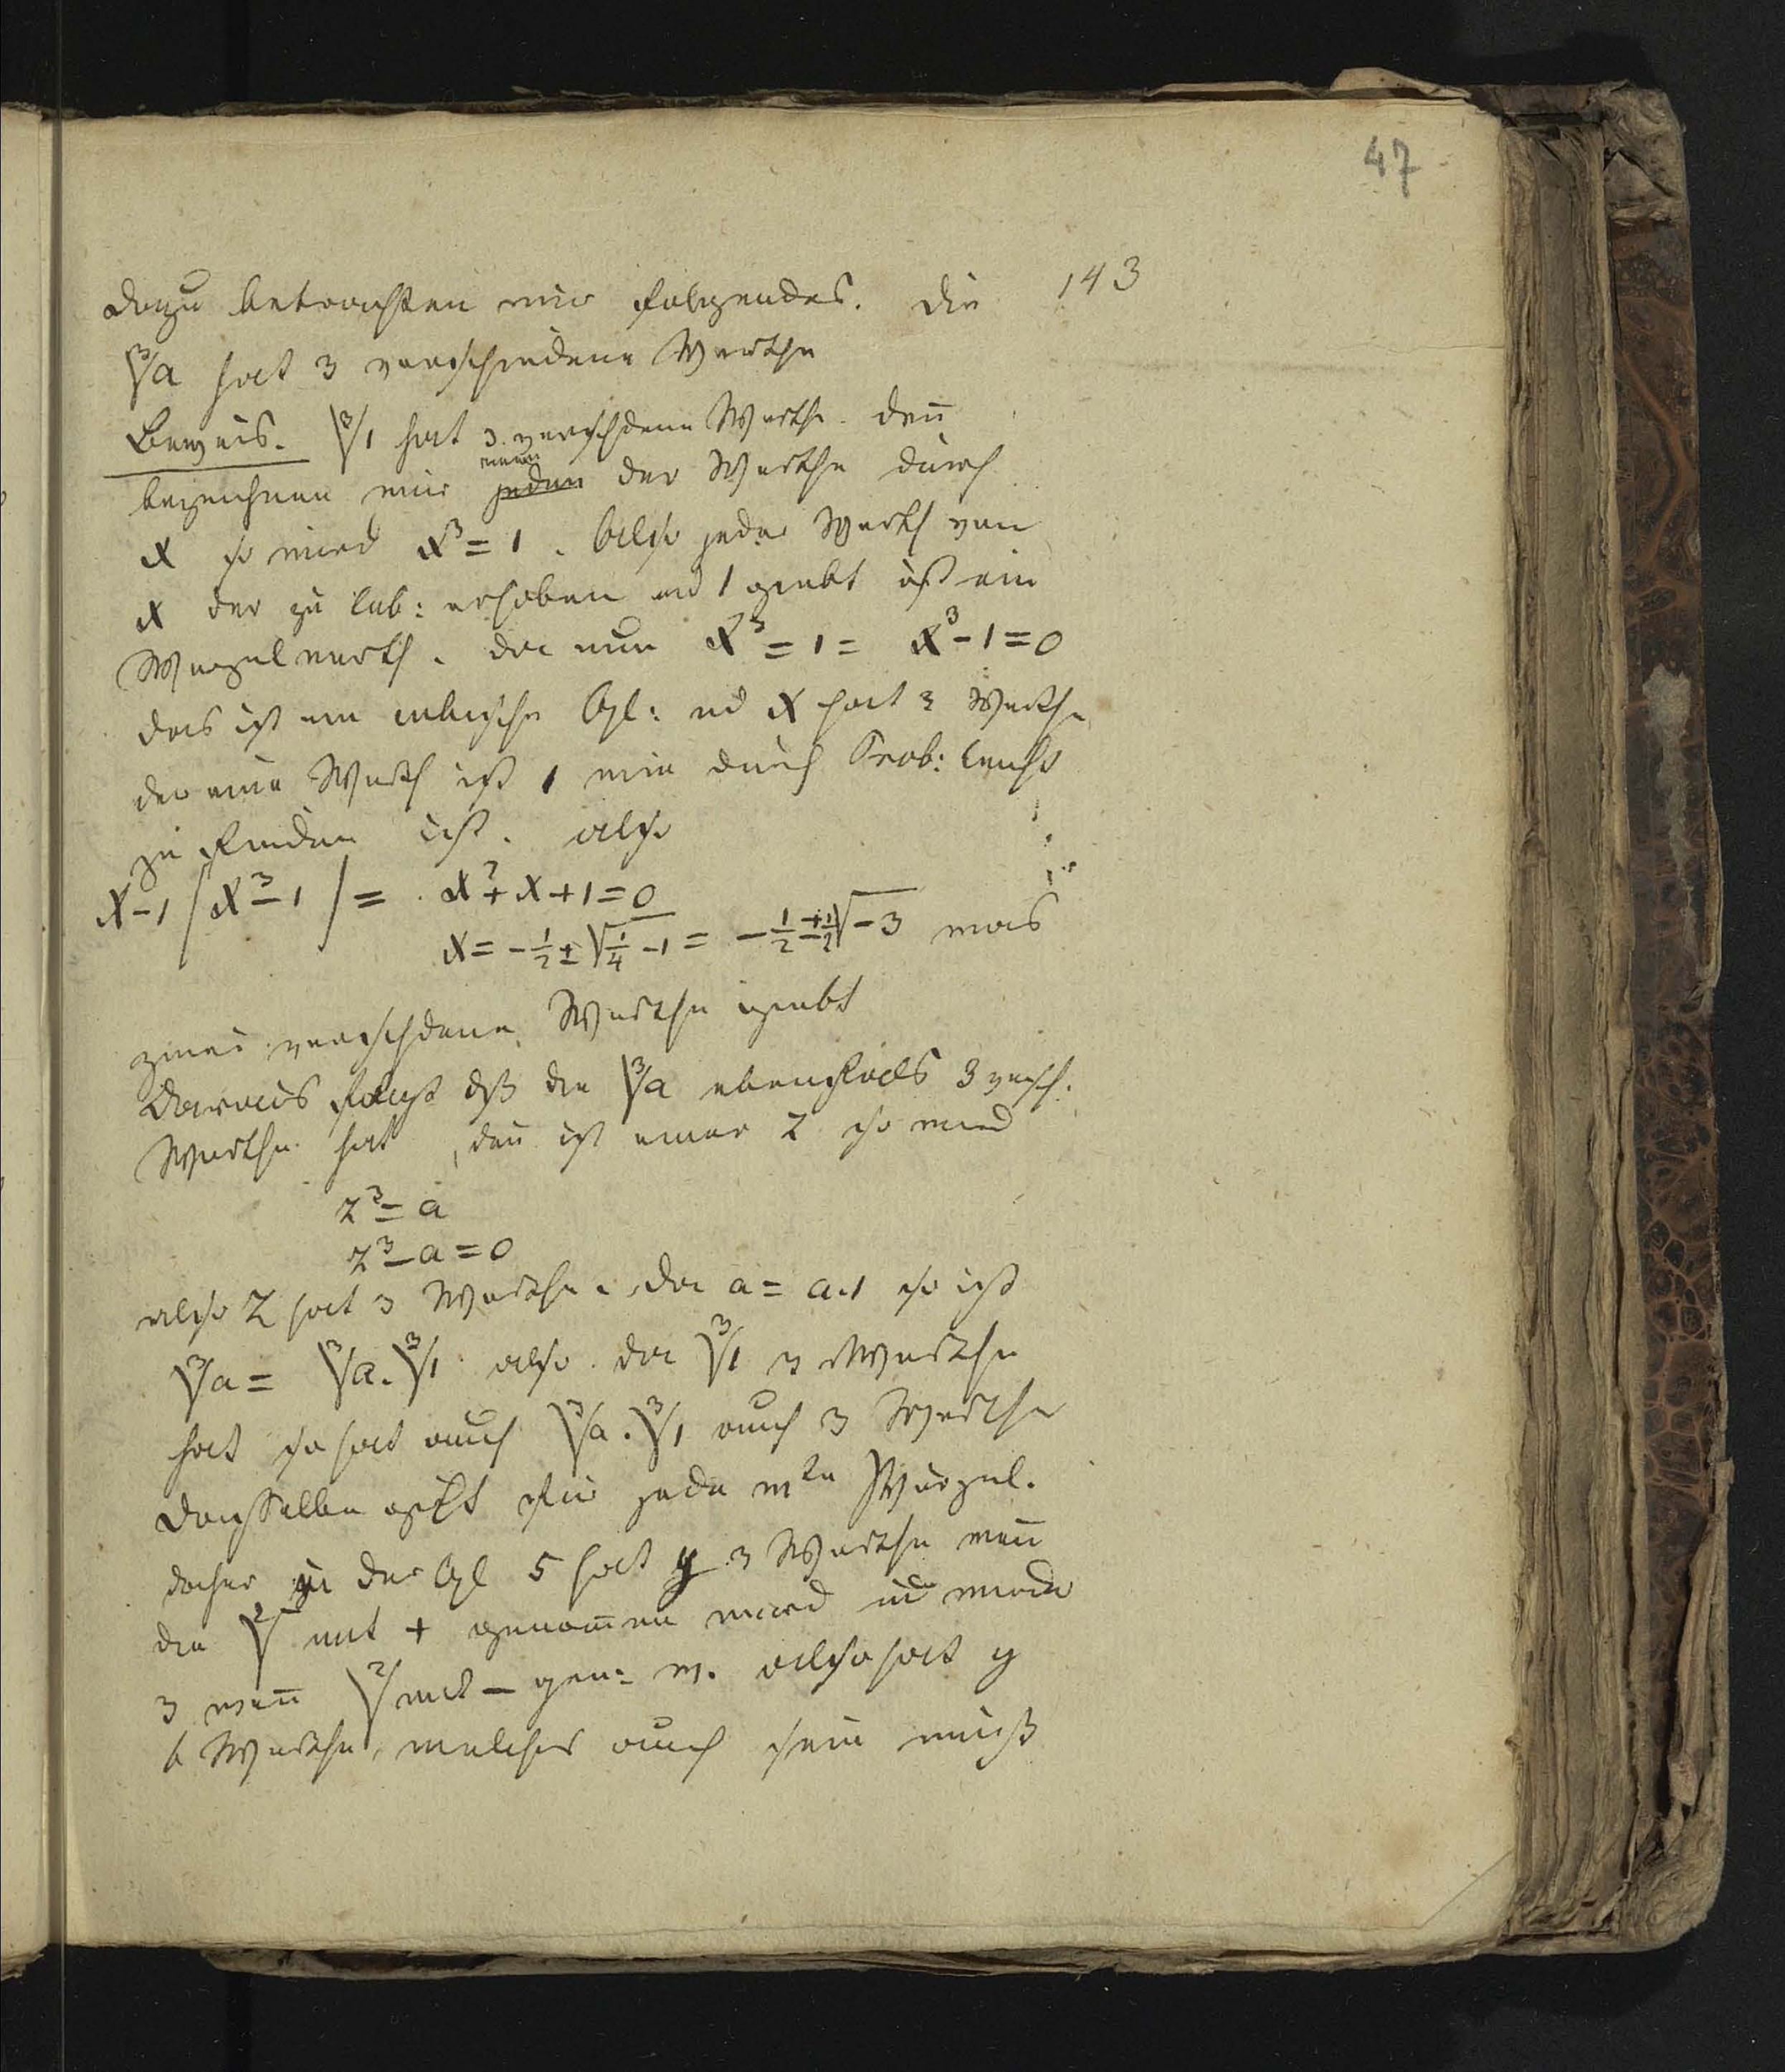 47
143
Dazu betrachten wir folgendes. Die
∛a hat 3 verschiedene Werthe
Beweis. ∛1 hat 3 verschdene Werthe. den̄
bezeichnen wir jeden der Werthe durch
einen
x so wird x³ = 1. Also jeder Werth von
x der zu Cub: erhoben 1 giebt ist ein
Wurzelwerth. da nun x³ = 1 = x³ - 1 = 0
das ist ein cubische Gl: ud x hat 3 Werthe
der eine Werth ist 1 wie durch Prob: leicht
zu finden ist. also
x-1 / x³-1 / = x² + x + 1 = 0
x = - 1/2 ± √(1/4 - 1) = - 1/2 ± 1/2 √-3 was
zwei verschdene Werthe giebt
Daraus folgt dß die ∛a ebenfals 3 versch.
Werthe hat, den̄ ist einer z so wird
z³ = a
z³ - a = 0
also z hat 3 Werthe. da a = a.1 so ist
∛a = ∛a . ∛1 also da ∛1 3 Werthe
hat so hat auch ∛a . ∛1 auch 3 Werthe
Dasselbe gilt für jede mte Wurzel.
daher in der Gl 5 hat y 3 Werthe wen̄
die ²√ mit + genom̄en wird ud wieder
3 wen̄ ²√ mit - gen: w. also hat y
6 Werthe, welches auch sein muß